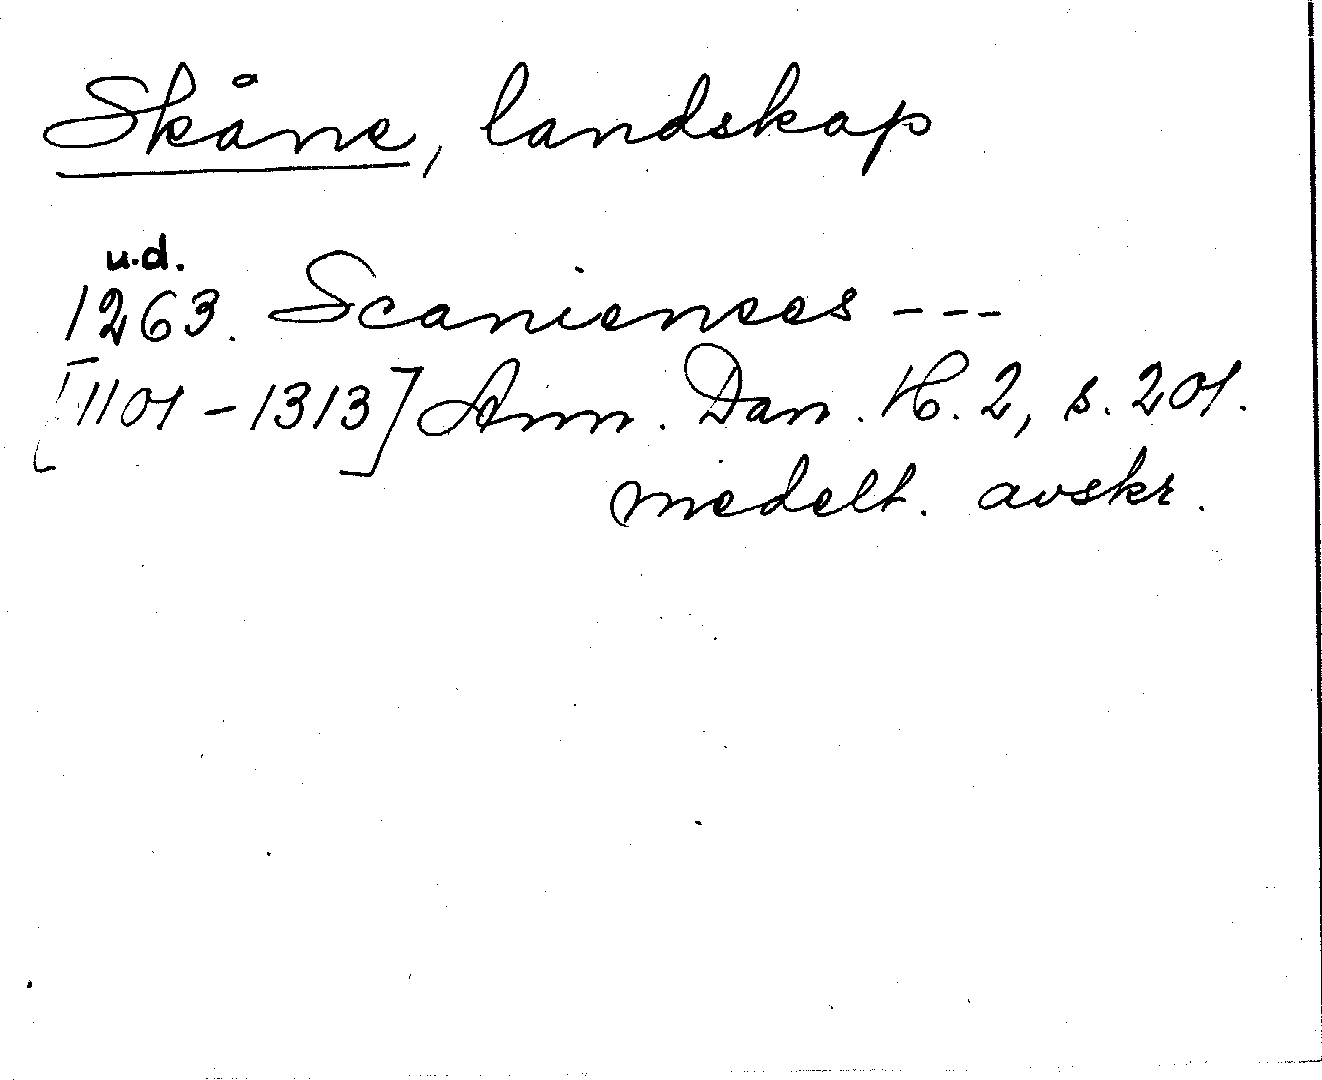 Skåne, landskap
u.d.
1263. Scaniences ---
[1101-1313] Ann. Dan. H. 2, s. 201.
medelt. avskr.